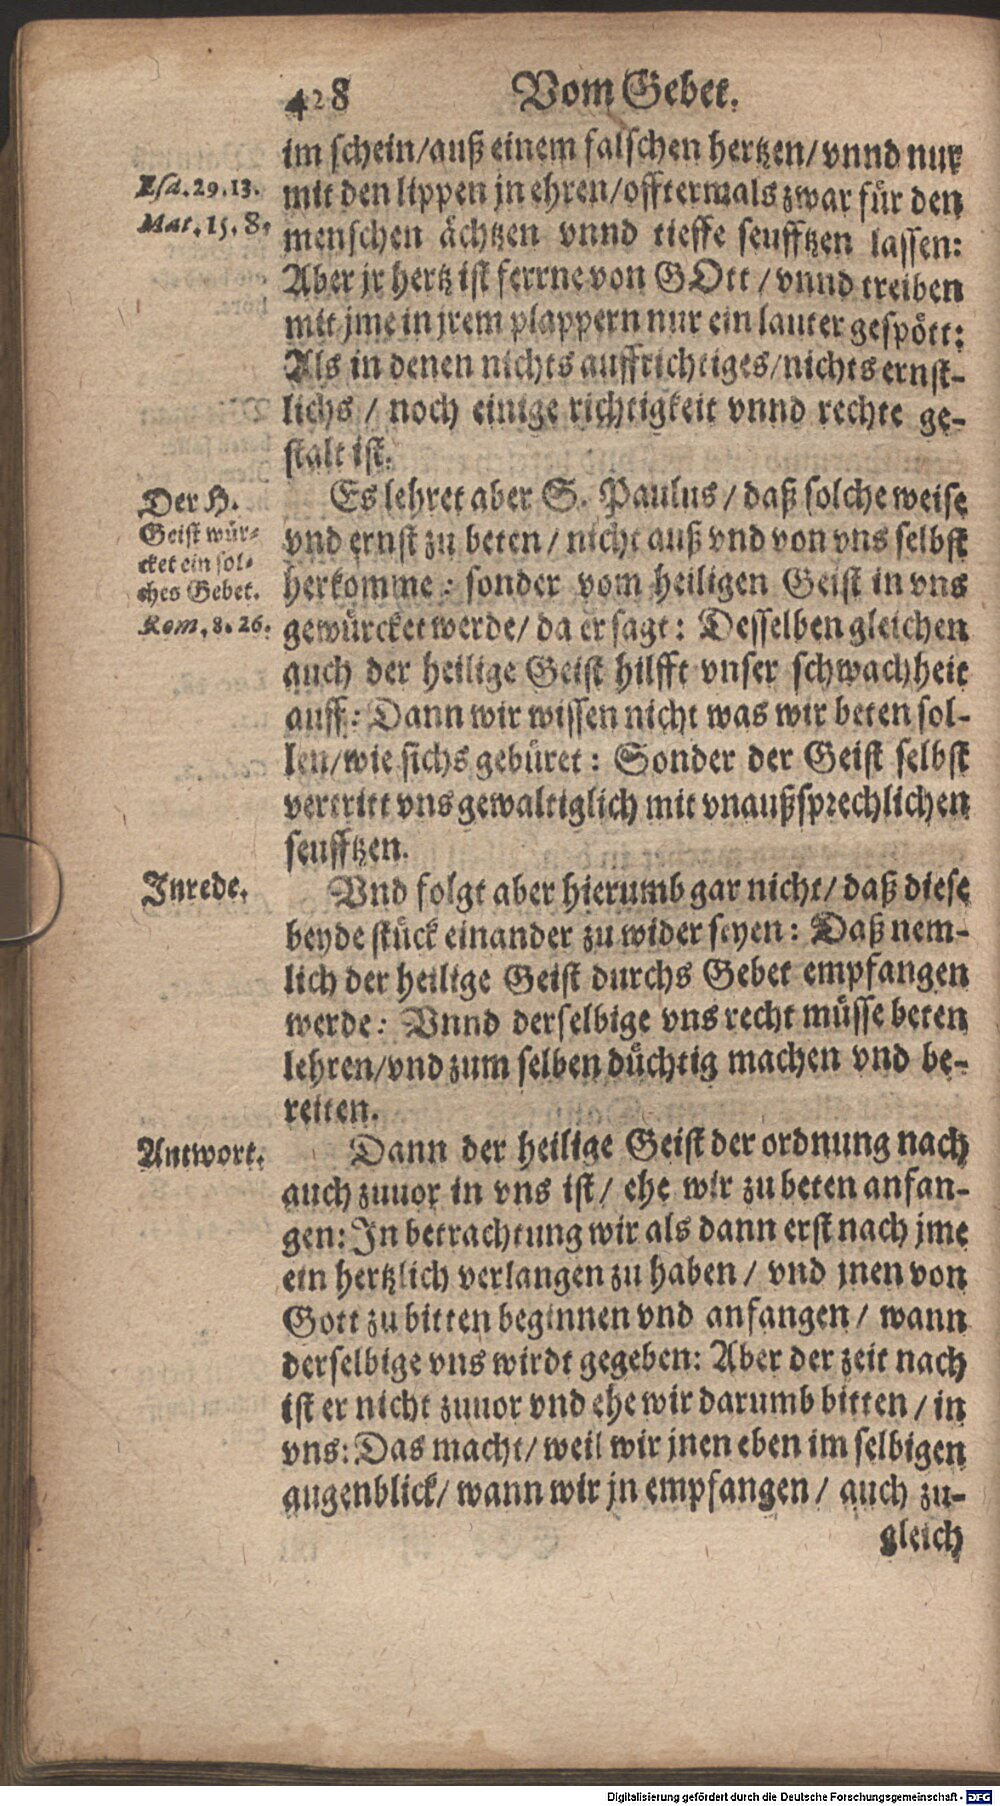 428 Vom Gebet.
im schein/auß einem falschen hertzen/vnnd nur
Esa. 29. 13.
mit den lippen jn ehren/offtermals zwar für den
Mat. 15. 8.
menschen ächtzen vnnd tieffe seufftzen lassen:
Aber jr hertz ist ferrne von GOtt / vnnd treiben
mit jme in jrem plappern nur ein lauter gespött:
Als in denen nichts auffrichtiges/nichts ernst-
lichs / noch einige richtigkeit vnnd rechte ge-
stalt ist.
Der H.
Geist wür-
cket ein sol-
ches Gebet.
Rom. 8. 26.
Es lehret aber S. Paulus / daß solche weise
vnd ernst zu beten / nicht auß vnd von vns selbst
herkomme: sonder vom heiligen Geist in vns
gewürcket werde/ da er sagt: Desselben gleichen
auch der heilige Geist hilfft vnser schwachheit
auff: Dann wir wissen nicht was wir beten sol-
len/wie sichs gebüret: Sonder der Geist selbst
vertritt vns gewaltiglich mit vnaußsprechlichen
seufftzen.
Inrede.
Vnd folgt aber hierumb gar nicht/ daß diese
beyde stück einander zu wider seyen: Daß nem-
lich der heilige Geist durchs Gebet empfangen
werde: Vnnd derselbige vns recht müsse beten
lehren/vnd zum selben düchtig machen vnd be-
reiten.
Antwort.
Dann der heilige Geist der ordnung nach
auch zuuor in vns ist/ ehe wir zu beten anfan-
gen: In betrachtung wir als dann erst nach jme
ein hertzlich verlangen zu haben / vnd jnen von
Gott zu bitten beginnen vnd anfangen / wann
derselbige vns wirdt gegeben: Aber der zeit nach
ist er nicht zuuor vnd ehe wir darumb bitten / in
vns: Das macht/ weil wir jnen eben im selbigen
augenblick/ wann wir jn empfangen / auch zu-
gleich
Digitalisierung gefördert durch die Deutsche Forschungsgemeinschaft - DFG